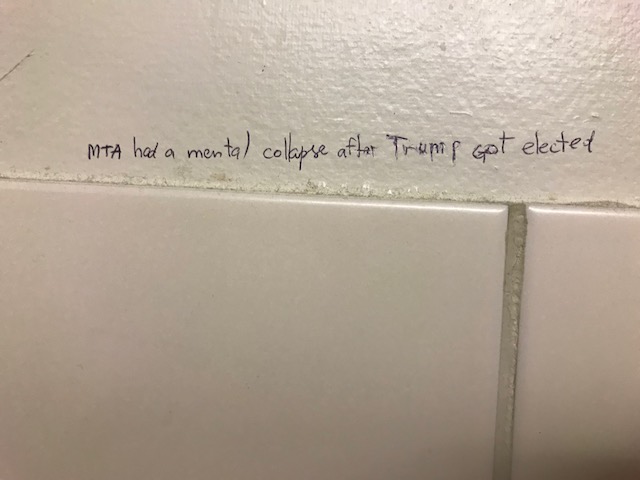 MTA had a mental collapse after Trump Got elected